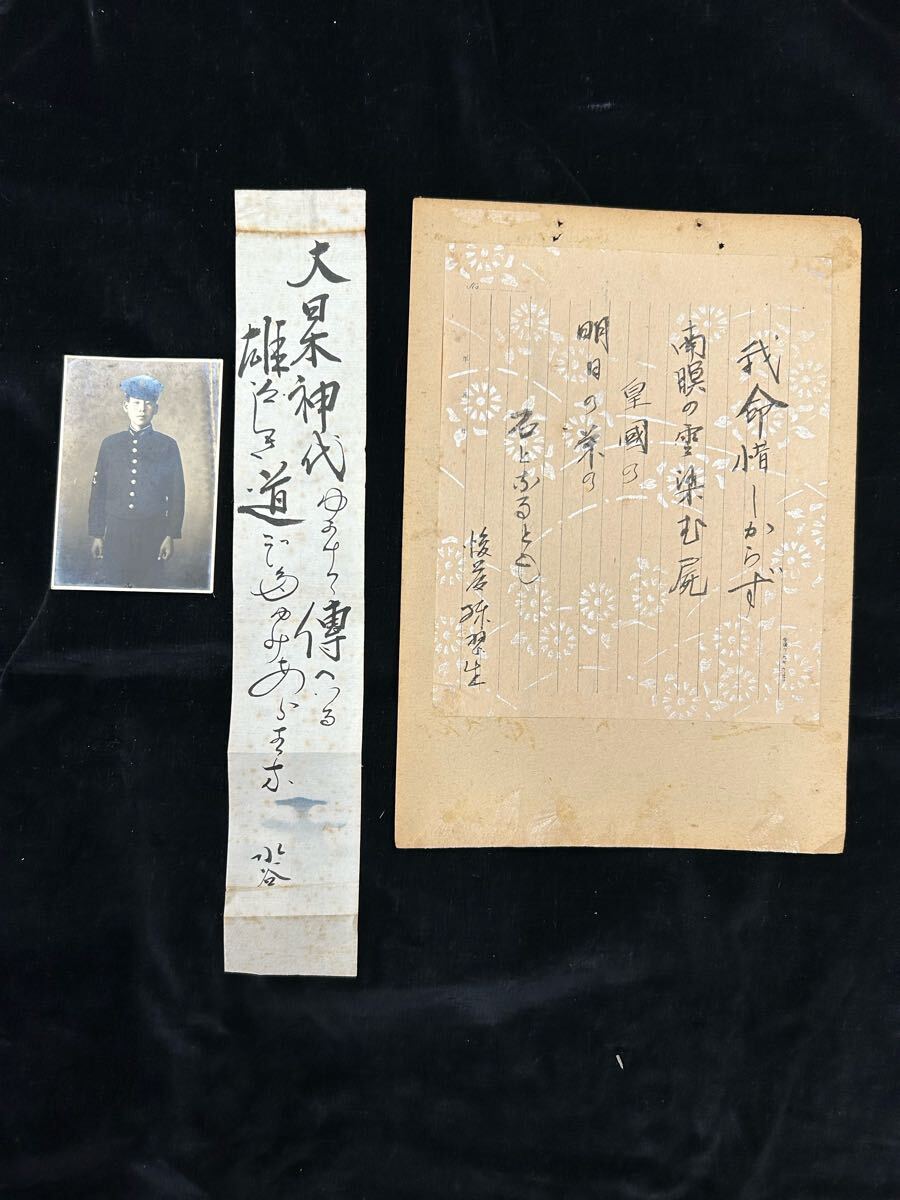 我命惜しからず
南瞑の雲染む屍
皇國の
明日の栄の
石となるとも
後藤練習生
大日本神代ゆかけて傳へつる
雄々しき道ぞたゆみあらすな
水谷